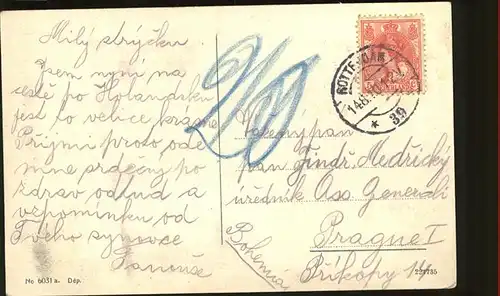 Milý strýčku
Jsem nyní na
cestě po Holandsku
jest to velice krásné
Přijmi proto ode
mne srdečný po
zdrav odtud a
vzpomínku od
Tvého synovce
No 6031 a. Dép.
20
ROTTERDAM
39
Vážený pan
pan Jindř. Medřický
úředník Ass Generali
Prague I
Příkopy 14
Bohemia